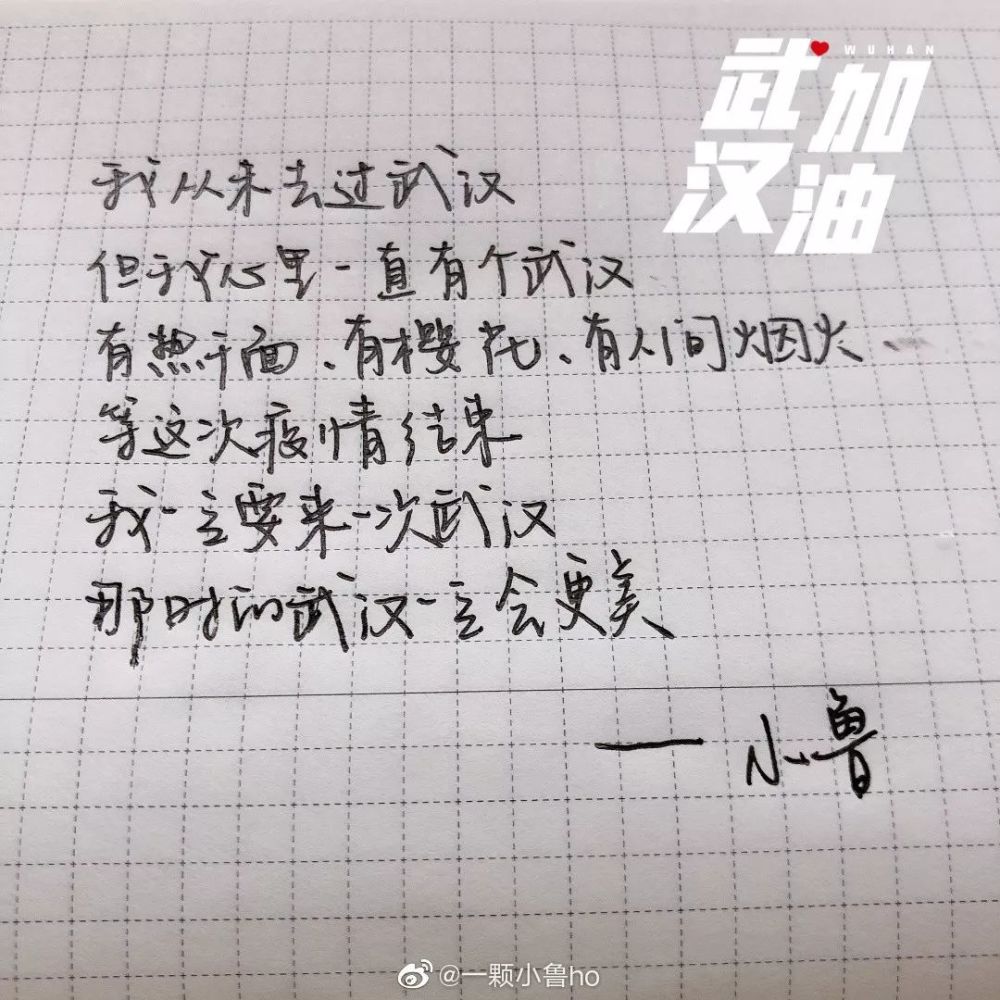 武汉加油
WUHAN
我从未去过武汉
但我心里一直有个武汉
有热干面、有樱花、有人间烟火、
等这次疫情结束
我一定要来一次武汉
那时的武汉一定会更美
——小鲁
@一颗小鲁ho